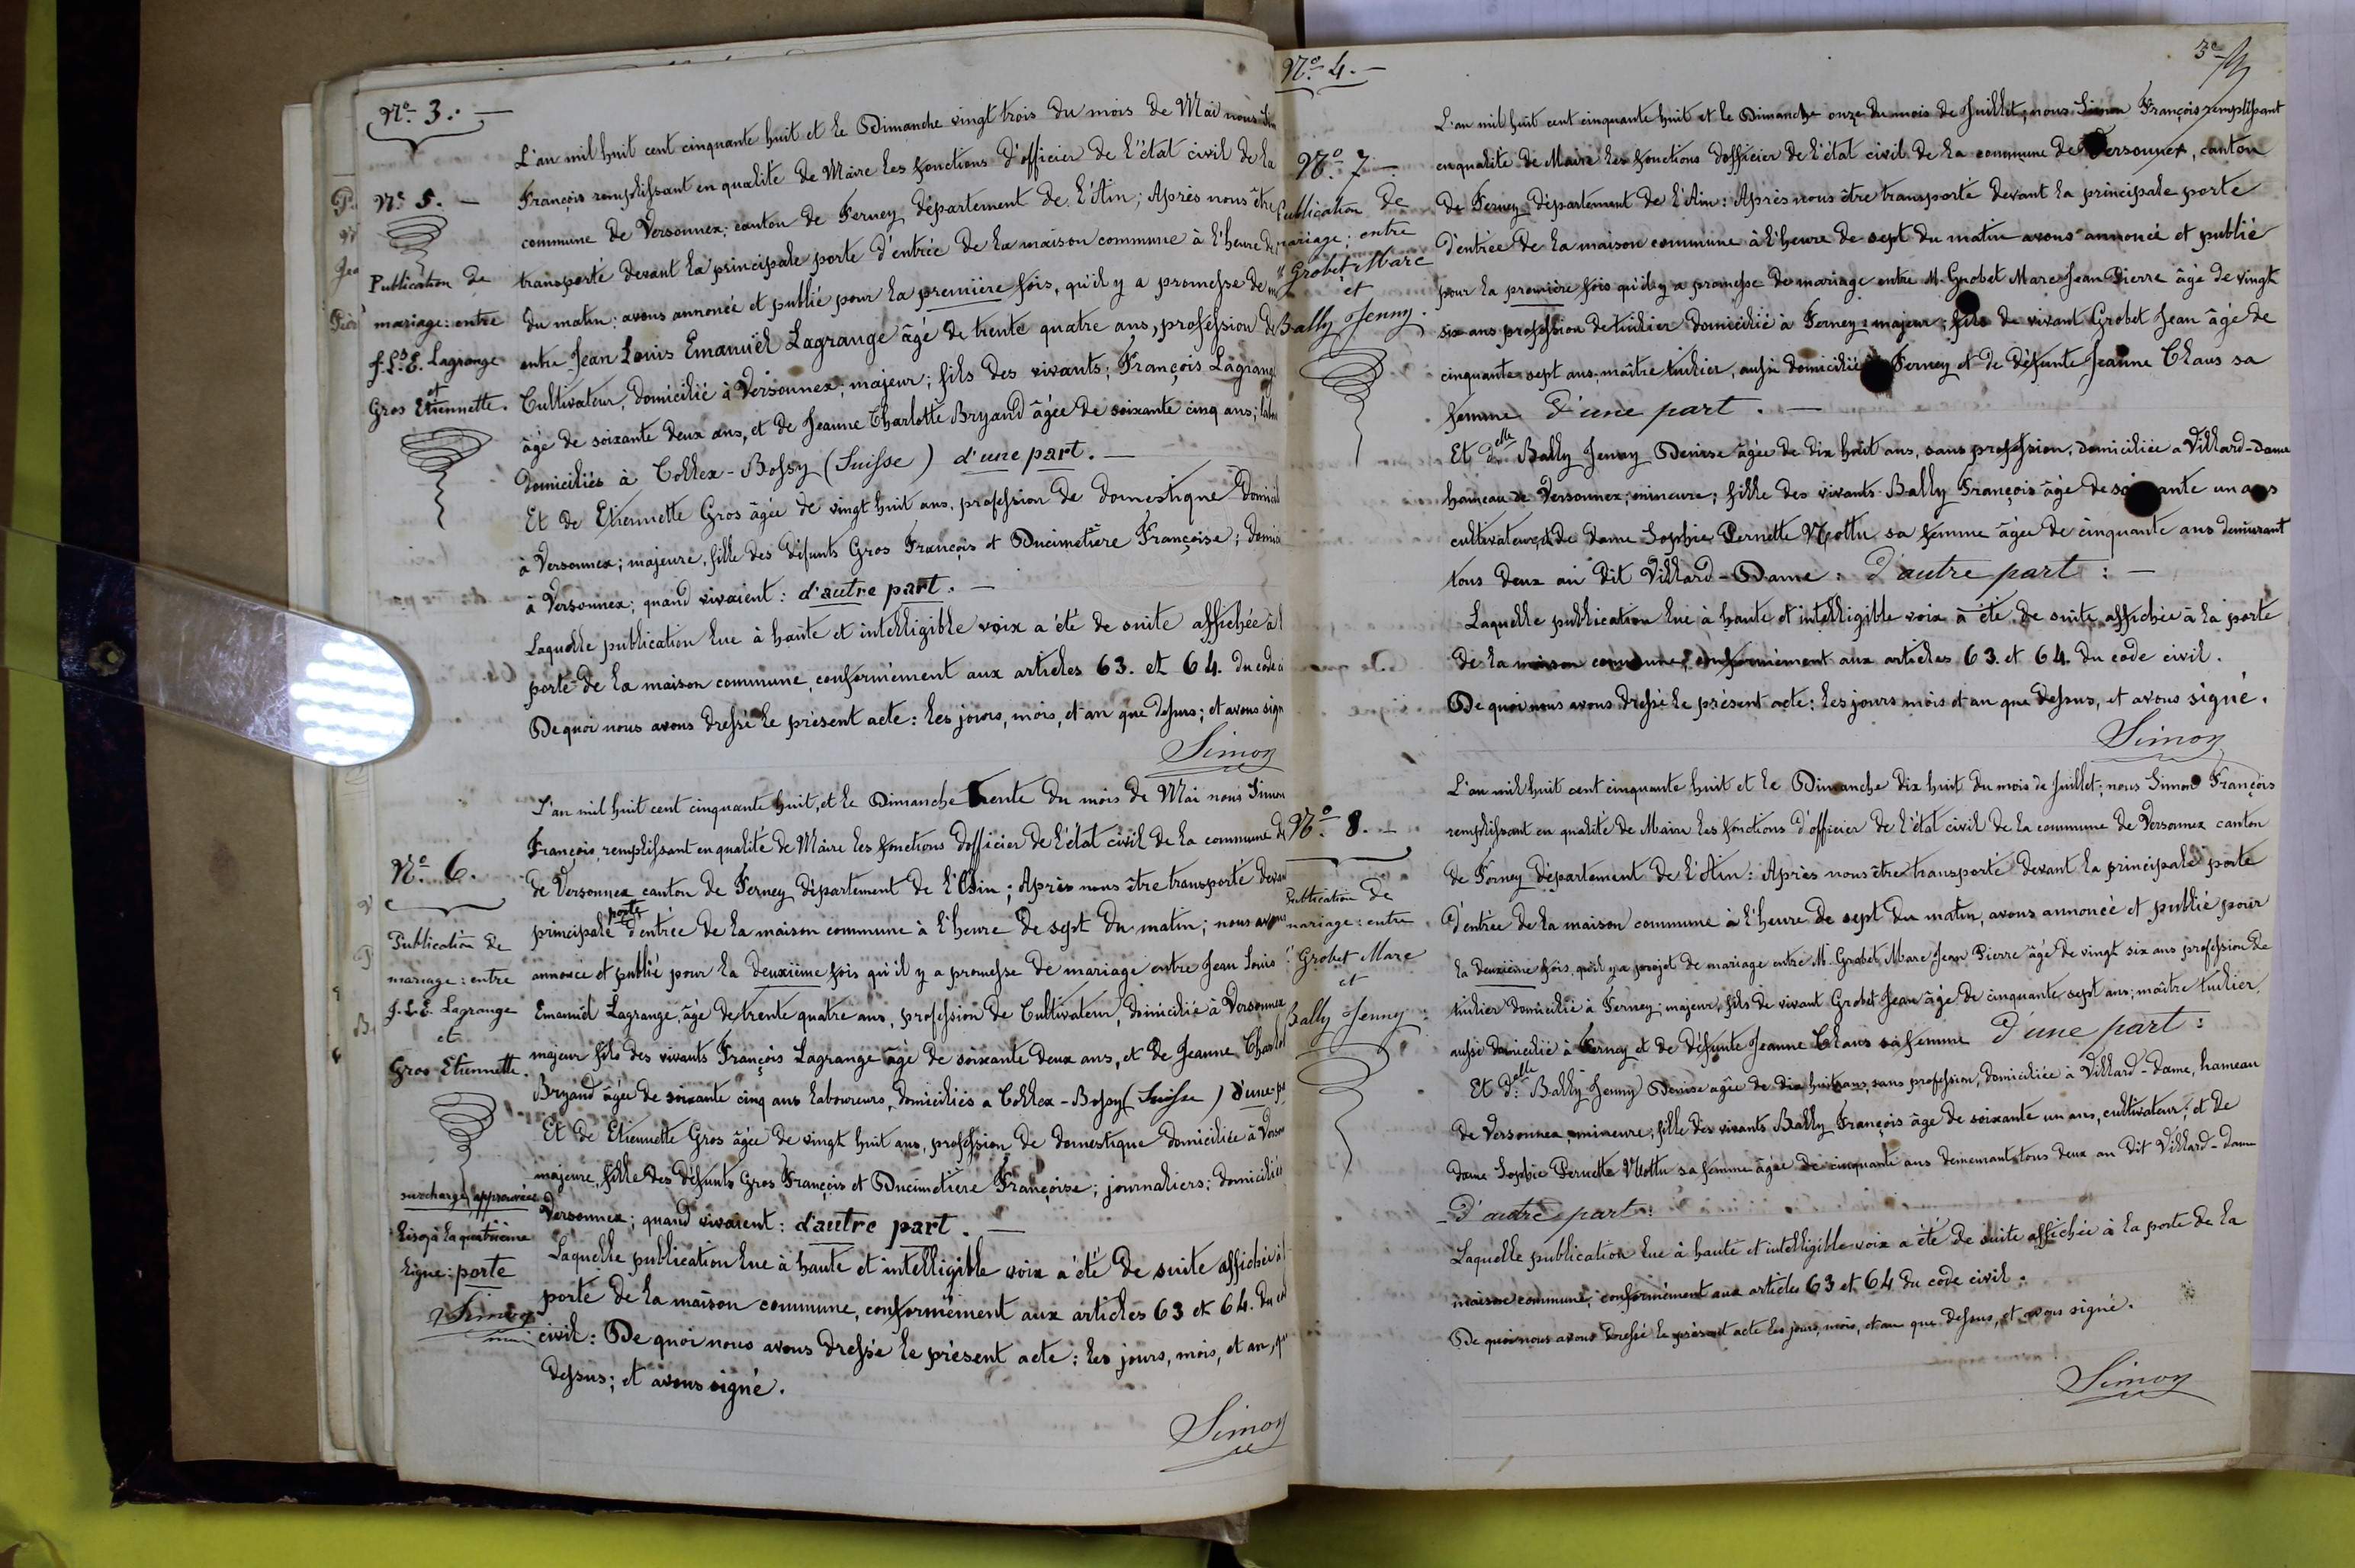 N.º 3. —
N.º 5. —
Publication de
mariage : entre
J. L.s E. Lagrange
et
Gros Etiennette.
L'an mil huit cent cinquante huit et le Dimanche vingt trois du mois de Mai nous
François remplissant en qualité de Maire les fonctions d'officier de l'état civil de la
commune de Versonnex; canton de Ferney département de l'Ain; Après nous être
transporté devant la principale porte d'entrée de la maison commune à l'heure de
du matin; avons annoncé et publié pour la première fois, qu'il y a promesse de
entre Jean Louis Emanuël Lagrange âgé de trente quatre ans, profession de
Cultivateur, domicilié à Versonnex; majeur; fils des vivants; François Lagrange
âgé de soixante deux ans, et de Jeanne Charlotte Bryand âgée de soixante cinq ans;
domiciliés à Collex-Bossy (Suisse) d'une part. —
Et de Etiennette Gros âgée de vingt huit ans, profession de domestique
à Versonnex; majeure, fille des défunts Gros François et Ducimetière Françoise;
à Versonnex; quand vivaient : d'autre part. —
Laquelle publication lue à haute et intelligible voix a été de suite affichée à
porte de la maison commune, conformément aux articles 63. et 64. du code
De quoi nous avons dressé le présent acte : les jours, mois, et an que dessus; et avons
Simon
N.º 6.
Publication de
mariage : entre
J. L. E. Lagrange
et
Gros Etiennette.
L'an mil huit cent cinquante huit, et le Dimanche trente du mois de Mai nous Simon
François, remplissant en qualité de Maire les fonctions d'officier de l'état civil de la commune de
de Versonnex canton de Ferney département de l'Ain; Après nous être transporté
principale porte d'entrée de la maison commune à l'heure de sept du matin; nous avons
annoncé et publié pour la deuxième fois qu'il y a promesse de mariage entre Jean Louis
Emanuël Lagrange, âgé de trente quatre ans, profession de Cultivateur, domicilié à Versonnex
majeur fils des vivants François Lagrange âgé de soixante deux ans, et de Jeanne
Bryand âgée de soixante cinq ans laboureurs, domiciliés a Collex-Bossy (Suisse) d'une
Et de Etiennette Gros âgée de vingt huit ans, profession de domestique domiciliée à
majeure, fille des défunts Gros François et Ducimetière Françoise; journaliers; domiciliés
Versonnex; quand vivaient : d'autre part. —
Laquelle publication lue à haute et intelligible voix a été de suite affichée
porte de la maison commune, conformément aux articles 63 et 64. du
civil : De quoi nous avons dressé le présent acte : les jours, mois, et an,
dessus; et avons signé.
Simon
surcharge approuvée
lisez à la quatrième
ligne : porte
Simon
N.º 4. —
N.º 7 —
Publication de
mariage; entre
Grobet Marc
et
Bally Jenny.
L'an mil huit cent cinquante huit et le Dimanche onze du mois de Juillet; nous Simon François remplissant
en qualité de Maire les fonctions d'officier de l'état civil de la commune de Versonnex, canton
de Ferney département de l'Ain : Après nous être transporté devant la principale porte
d'entrée de la maison commune à l'heure de sept du matin avons annoncé et publié
pour la première fois qu'il y a promesse de mariage entre M. Grobet Marc Jean Pierre âgé de vingt
six ans profession de tuilier domicilié à Ferney; majeur; fils de vivant Grobet Jean âgé de
cinquante sept ans; maître tuilier, aussi domicilié Ferney et de défunte Jeanne Chaus sa
femme d'une part. —
Et d.elle Bally Jenny Denise âgée de dix huit ans, sans profession, domiciliée a Villard-Dame
hameau de Versonnex; mineure; fille des vivants Bally François âgé de soixante un ans
cultivateur, et de dame Sophie Pernette Nottu sa femme âgée de cinquante ans demeurant
tous deux au dit Villard-Dame : d'autre part : —
Laquelle publication lue à haute et intelligible voix à été de suite affichée à la porte
de la maison commune, conformément aux articles 63. et 64. du code civil.
De quoi nous avons dressé le présent acte; les jours mois et an que dessus, et avons signé.
Simon
N.º 8. —
Publication de
mariage : entre
Grobet Marc
et
Bally Jenny
L'an mil huit cent cinquante huit et le Dimanche dix huit du mois de Juillet; nous Simon François
remplissant en qualité de Maire les fonctions d'officier de l'état civil de la commune de Versonnex canton
de Ferney département de l'Ain : Après nous être transporté devant la principale porte
d'entrée de la maison commune à l'heure de sept du matin, avons annoncé et publié pour
la deuxième fois, qu'il y a projet de mariage entre M. Grobet Marc Jean Pierre âgé de vingt six ans profession de
tuilier domicilié à Ferney; majeur, fils de vivant Grobet Jean âgé de cinquante sept ans; maître tuilier,
aussi domicilié à Ferney et de défunte Jeanne Chaus sa femme d'une part :
Et d.elle Bally Jenny Denise agée de dix huit ans, sans profession, domiciliée à Villard-Dame, hameau
de Versonnex, mineure, fille des vivants Bally François âgé de soixante un ans, cultivateur; et de
dame Sophie Pernette Nottu sa femme âgée de cinquante ans demeurant tous deux au dit Villard-dame
d'autre part :
Laquelle publication lue à haute et intelligible voix a été de suite affichée à la porte de la
maison commune, conformément aux articles 63 et 64 du code civil.
De quoi nous avons dressé le présent acte les jours, mois, et an que dessus, et avons signé.
Simon